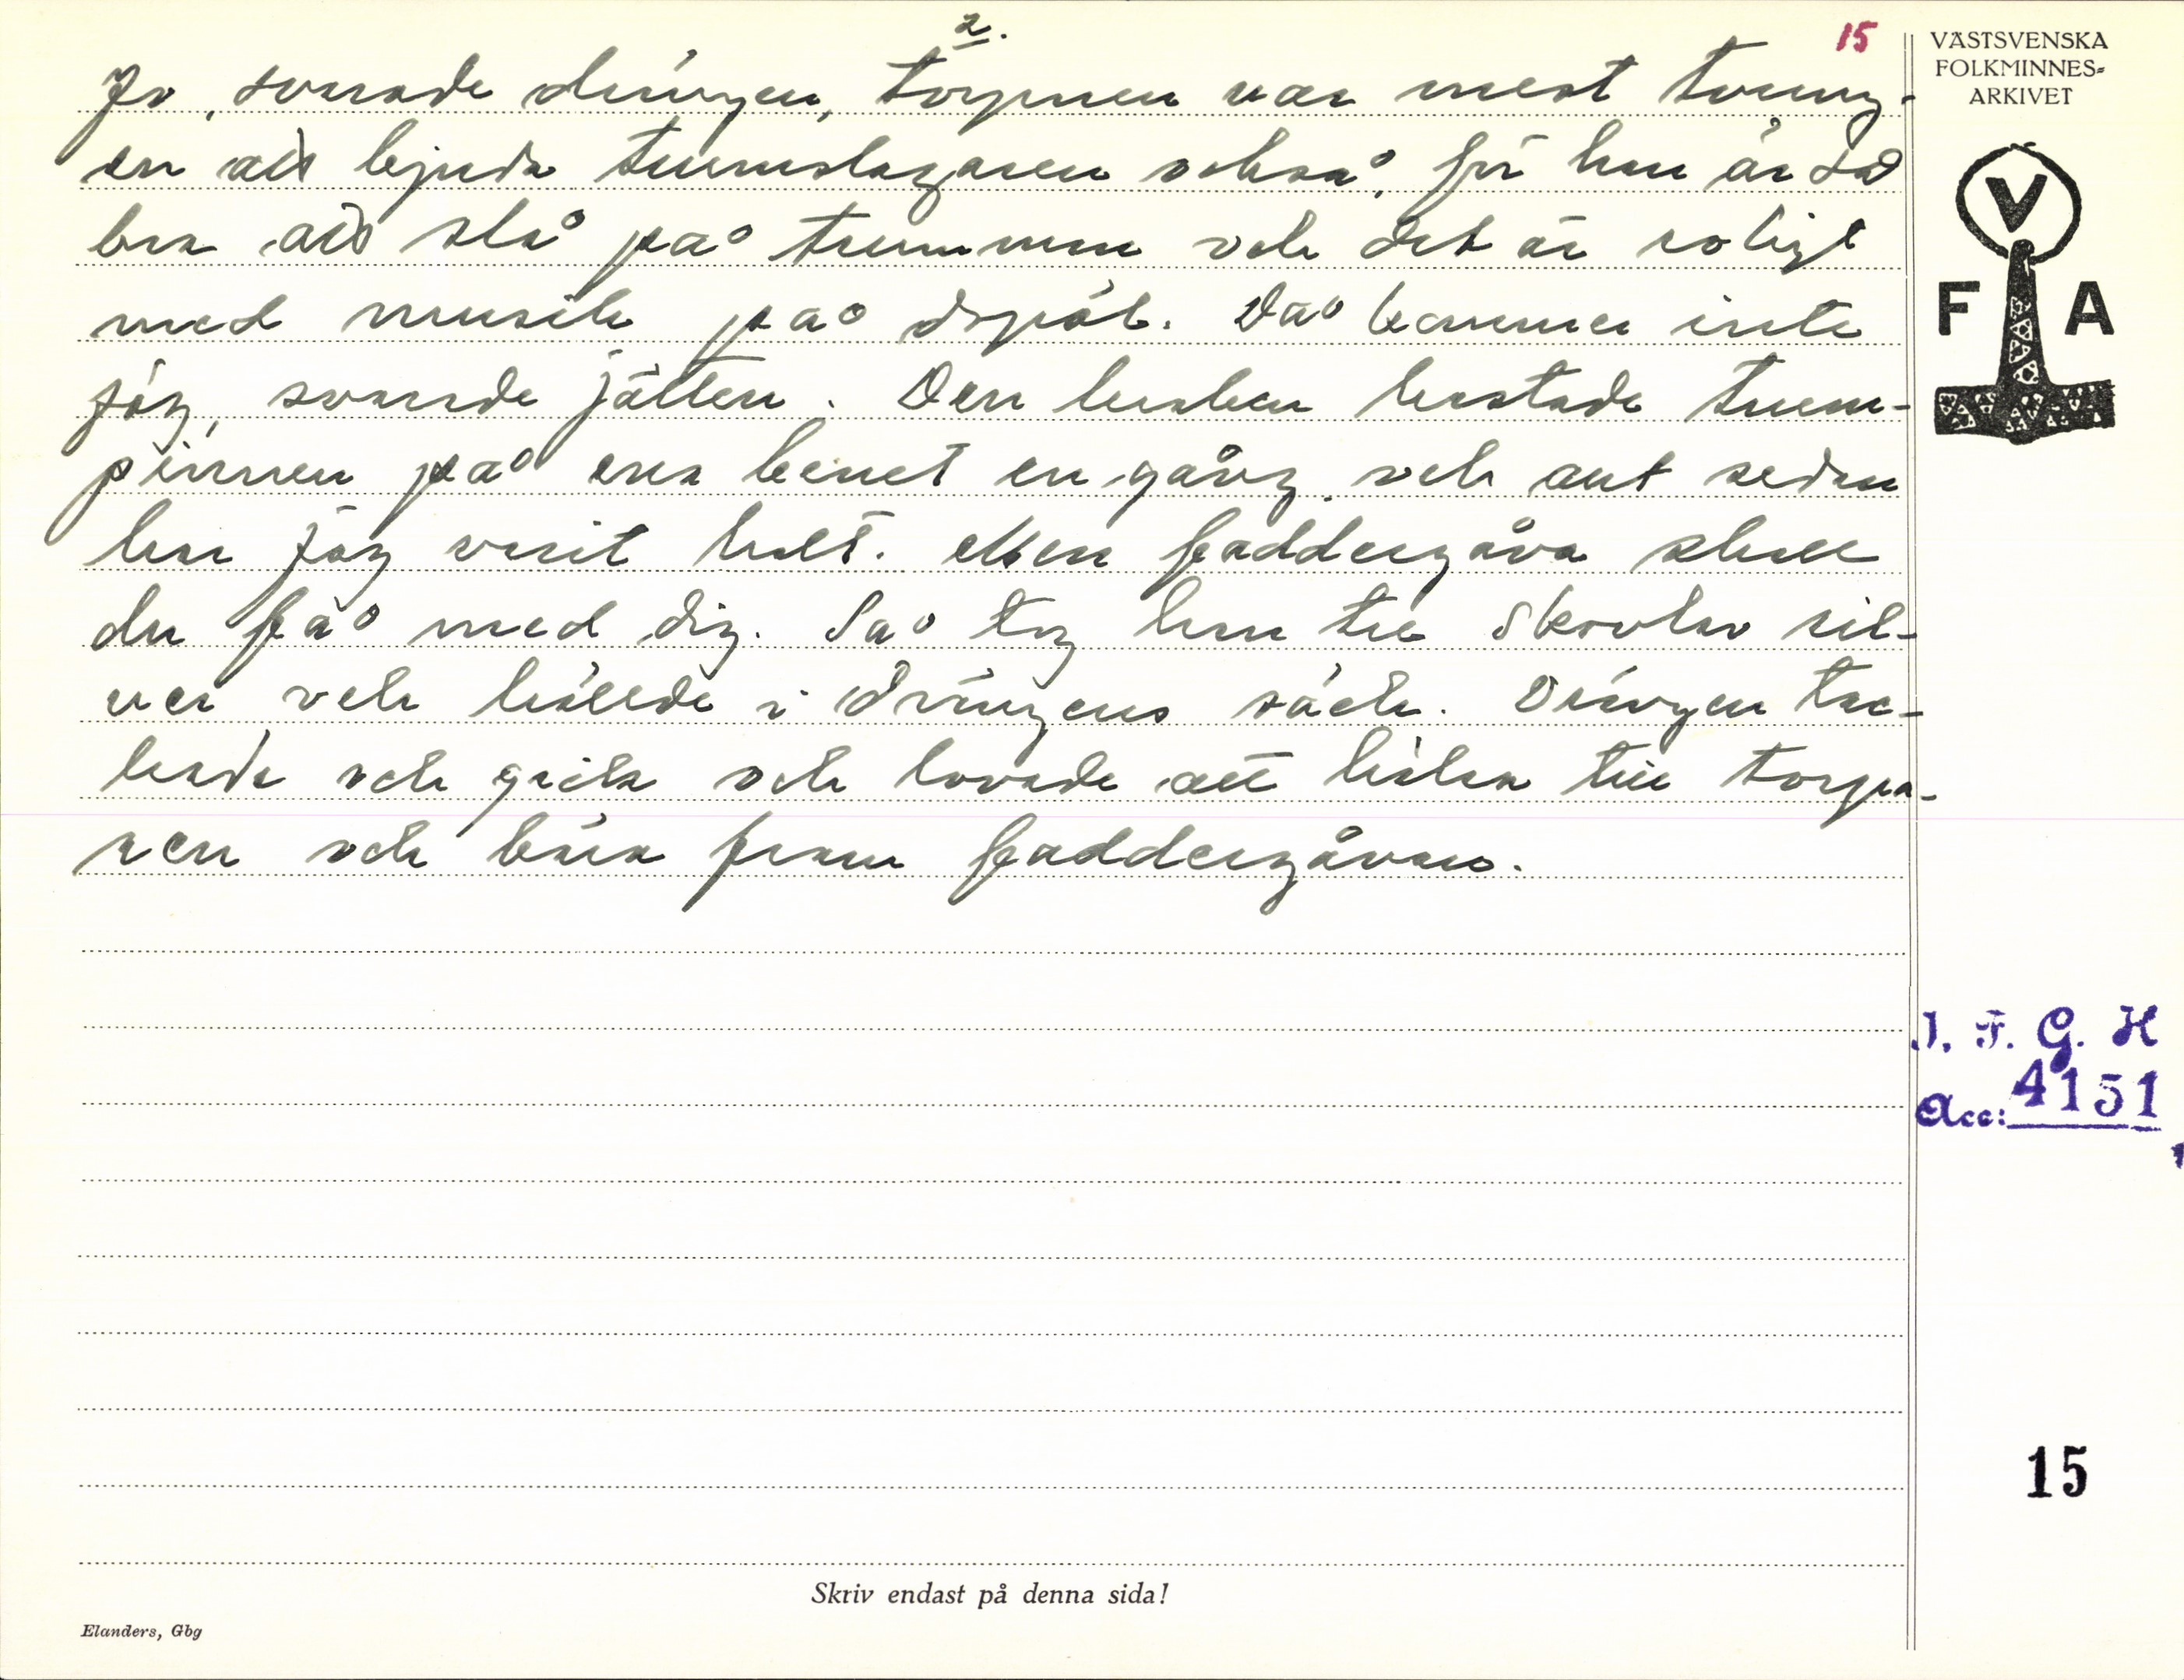 2.
15
Jo, svarade drängen, torpnen var mest tvung-
en att bjuda trumslagaren också, för han är så
bra att slå på trumman och det är roligt
med musik på dopöl. Då kommer inte
jag, svarade jätten. Den kastade trum-
pinnen på ena benet en gång och allt sedan
har jag varit halt. Men faddergåva skall
du få med dig. Så tog han tre skovlar sil-
ver och hällde i drängens säck. Drängen tac-
kade och gick och lovade att hälsa till torpa-
ren och bära fram faddergåvan.
VÄSTSVENSKA
FOLKMINNES-
ARKIVET
V
F A
I. F. G. H
Acc: 4151
15
Skriv endast på denna sida!
Elanders, Gbg